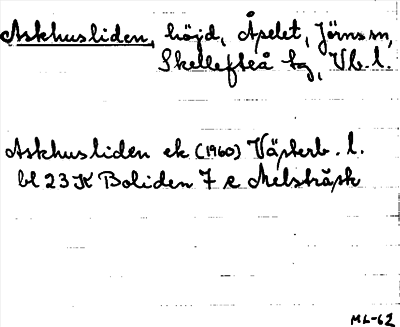 Askhusliden, höjd, Åpelet, Jörns sn,
Skellefteå tg, Vb. l.
Askhusliden ek (1960) Västerb. l.
bl 23 K Boliden 7 e Melsträsk
ML-62